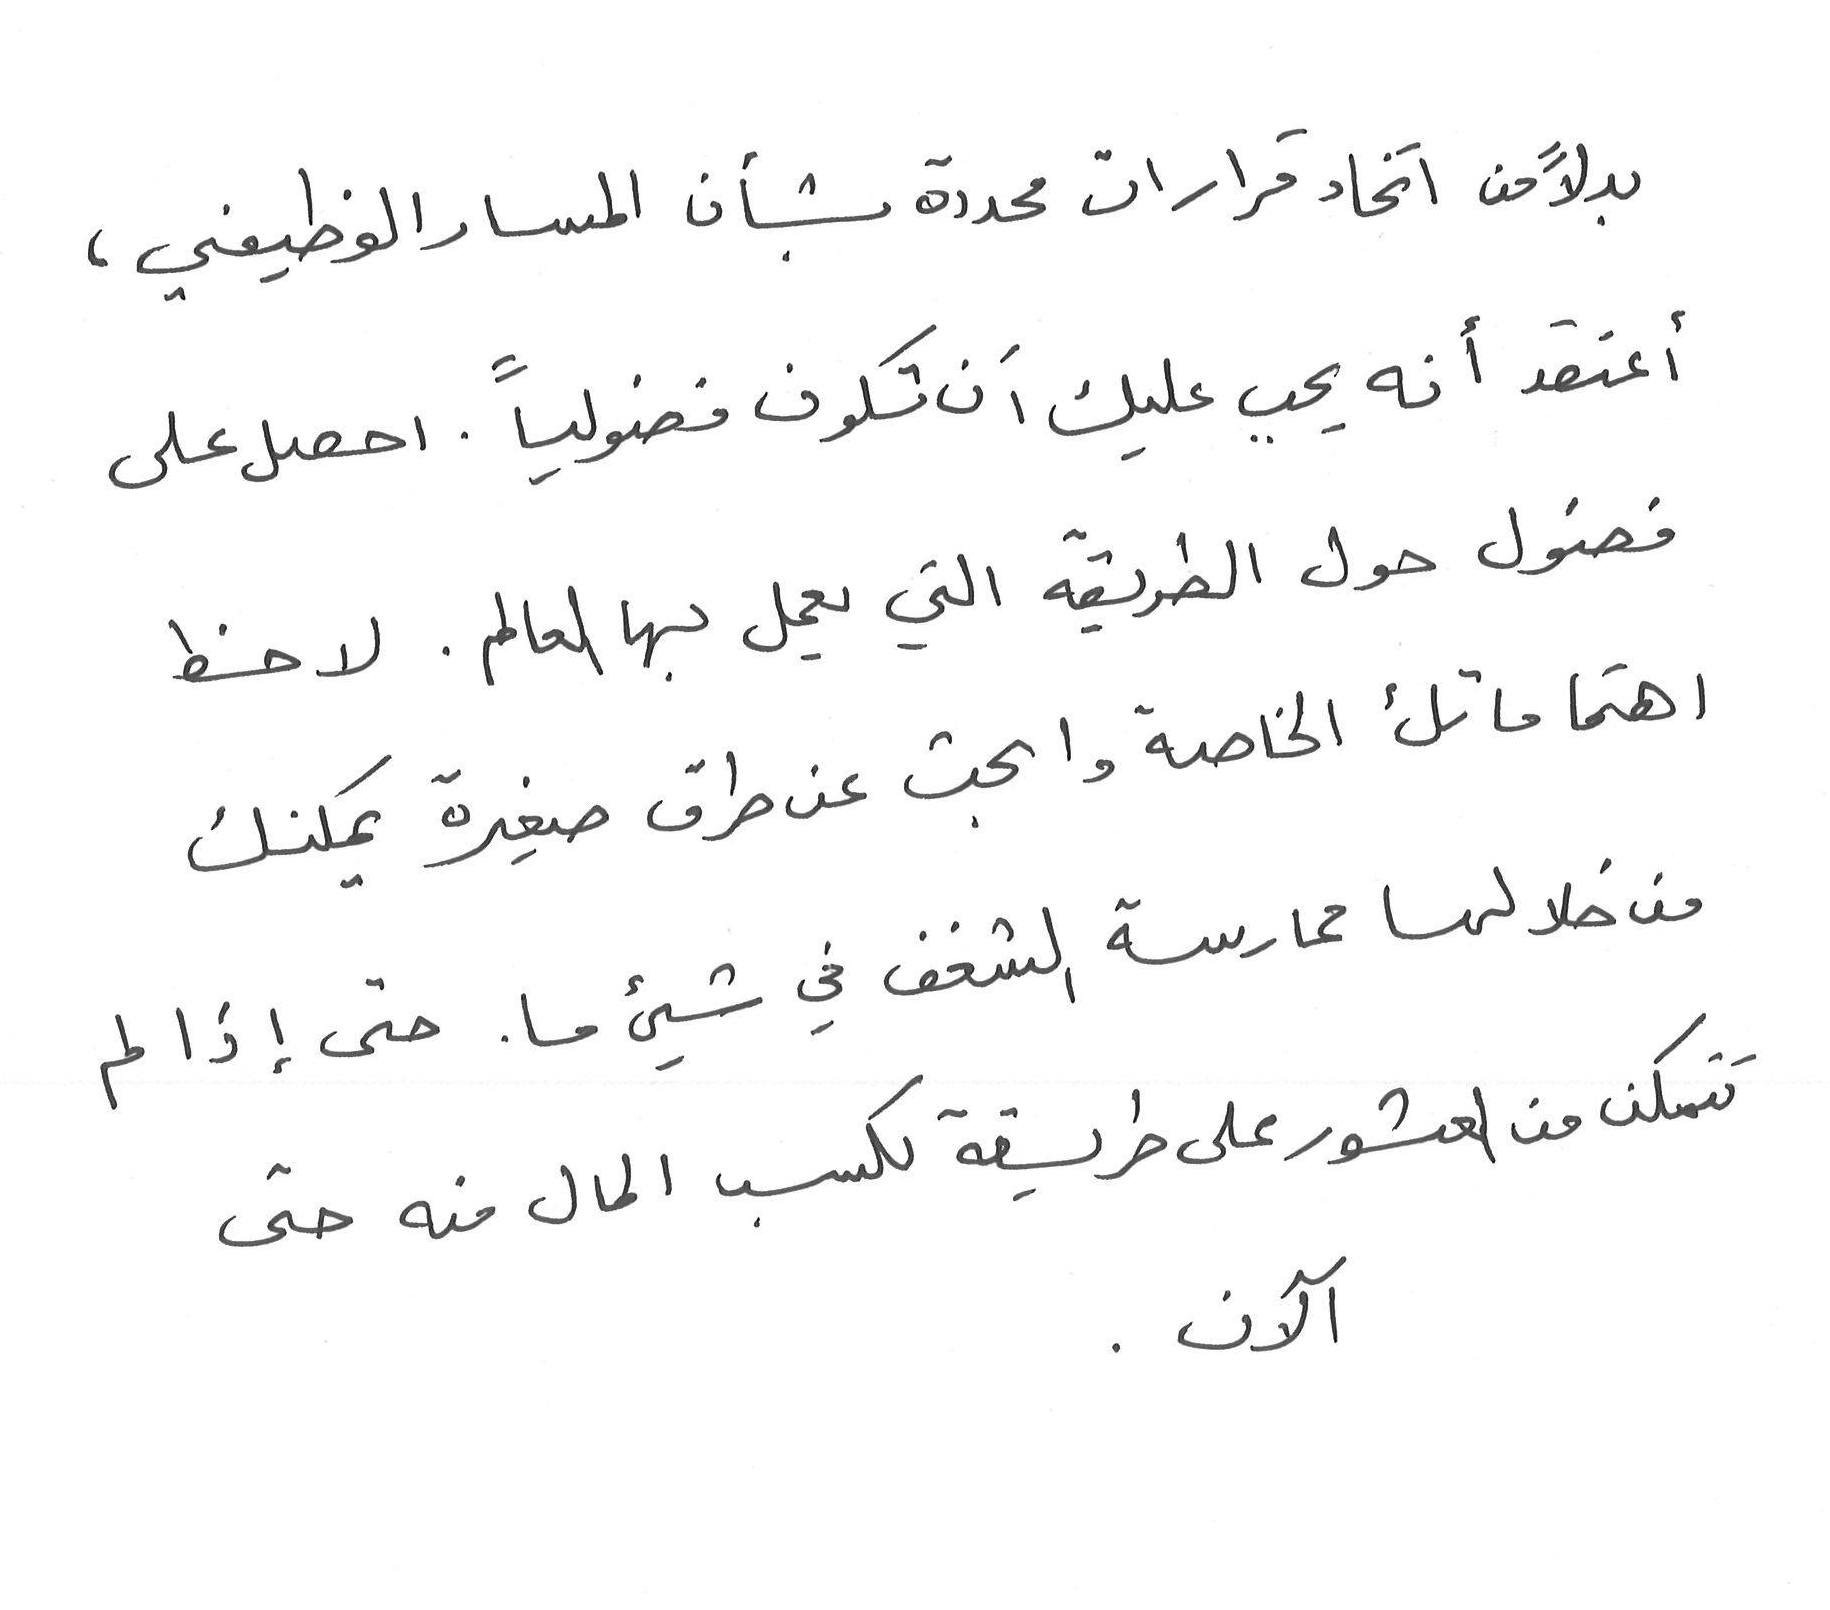 بدلاً من اتخاد قرارات محددة بشأن المسار الوظيفي ،
أعتقد أنه يجب عليك أن تكون فضولياً . احصل على
فضول حول الطريقة التي يعمل بها العالم . لاحظ
اهتماماتك الخاصة وابحث عن طرق صغيرة يمكنك
من خلالها ممارسة الشغف في شيئ ما . حتى إذا لم
تتمكن من العثور على طريقة لكسب المال منه حتى
الآن .